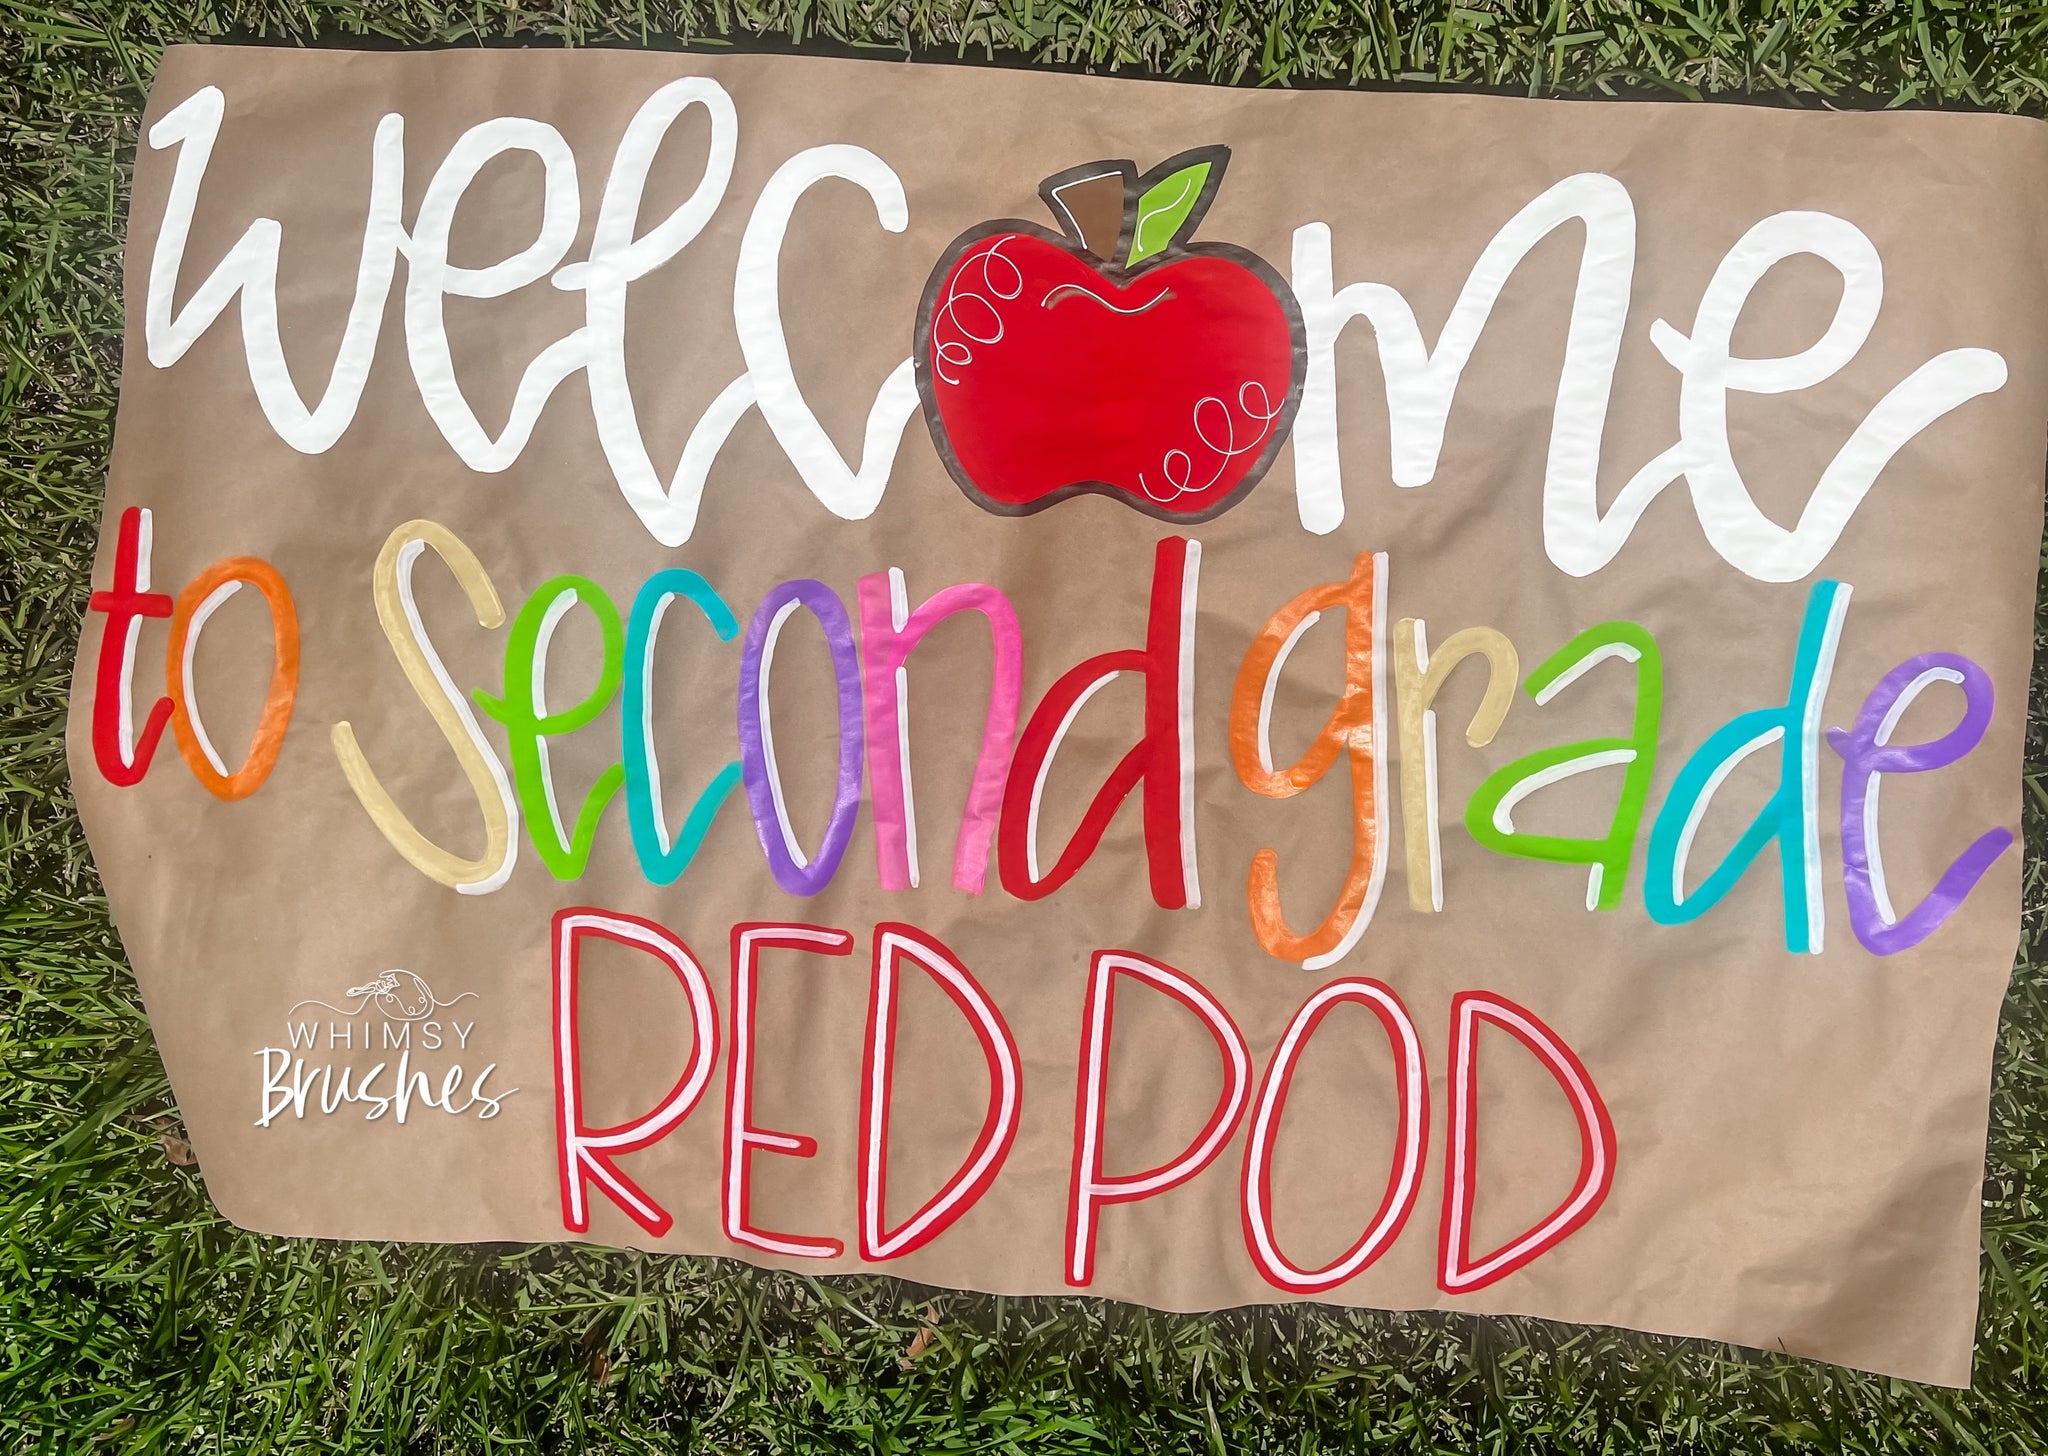 welcome
to Second grade
RED POD
WHIMSY
Brushes